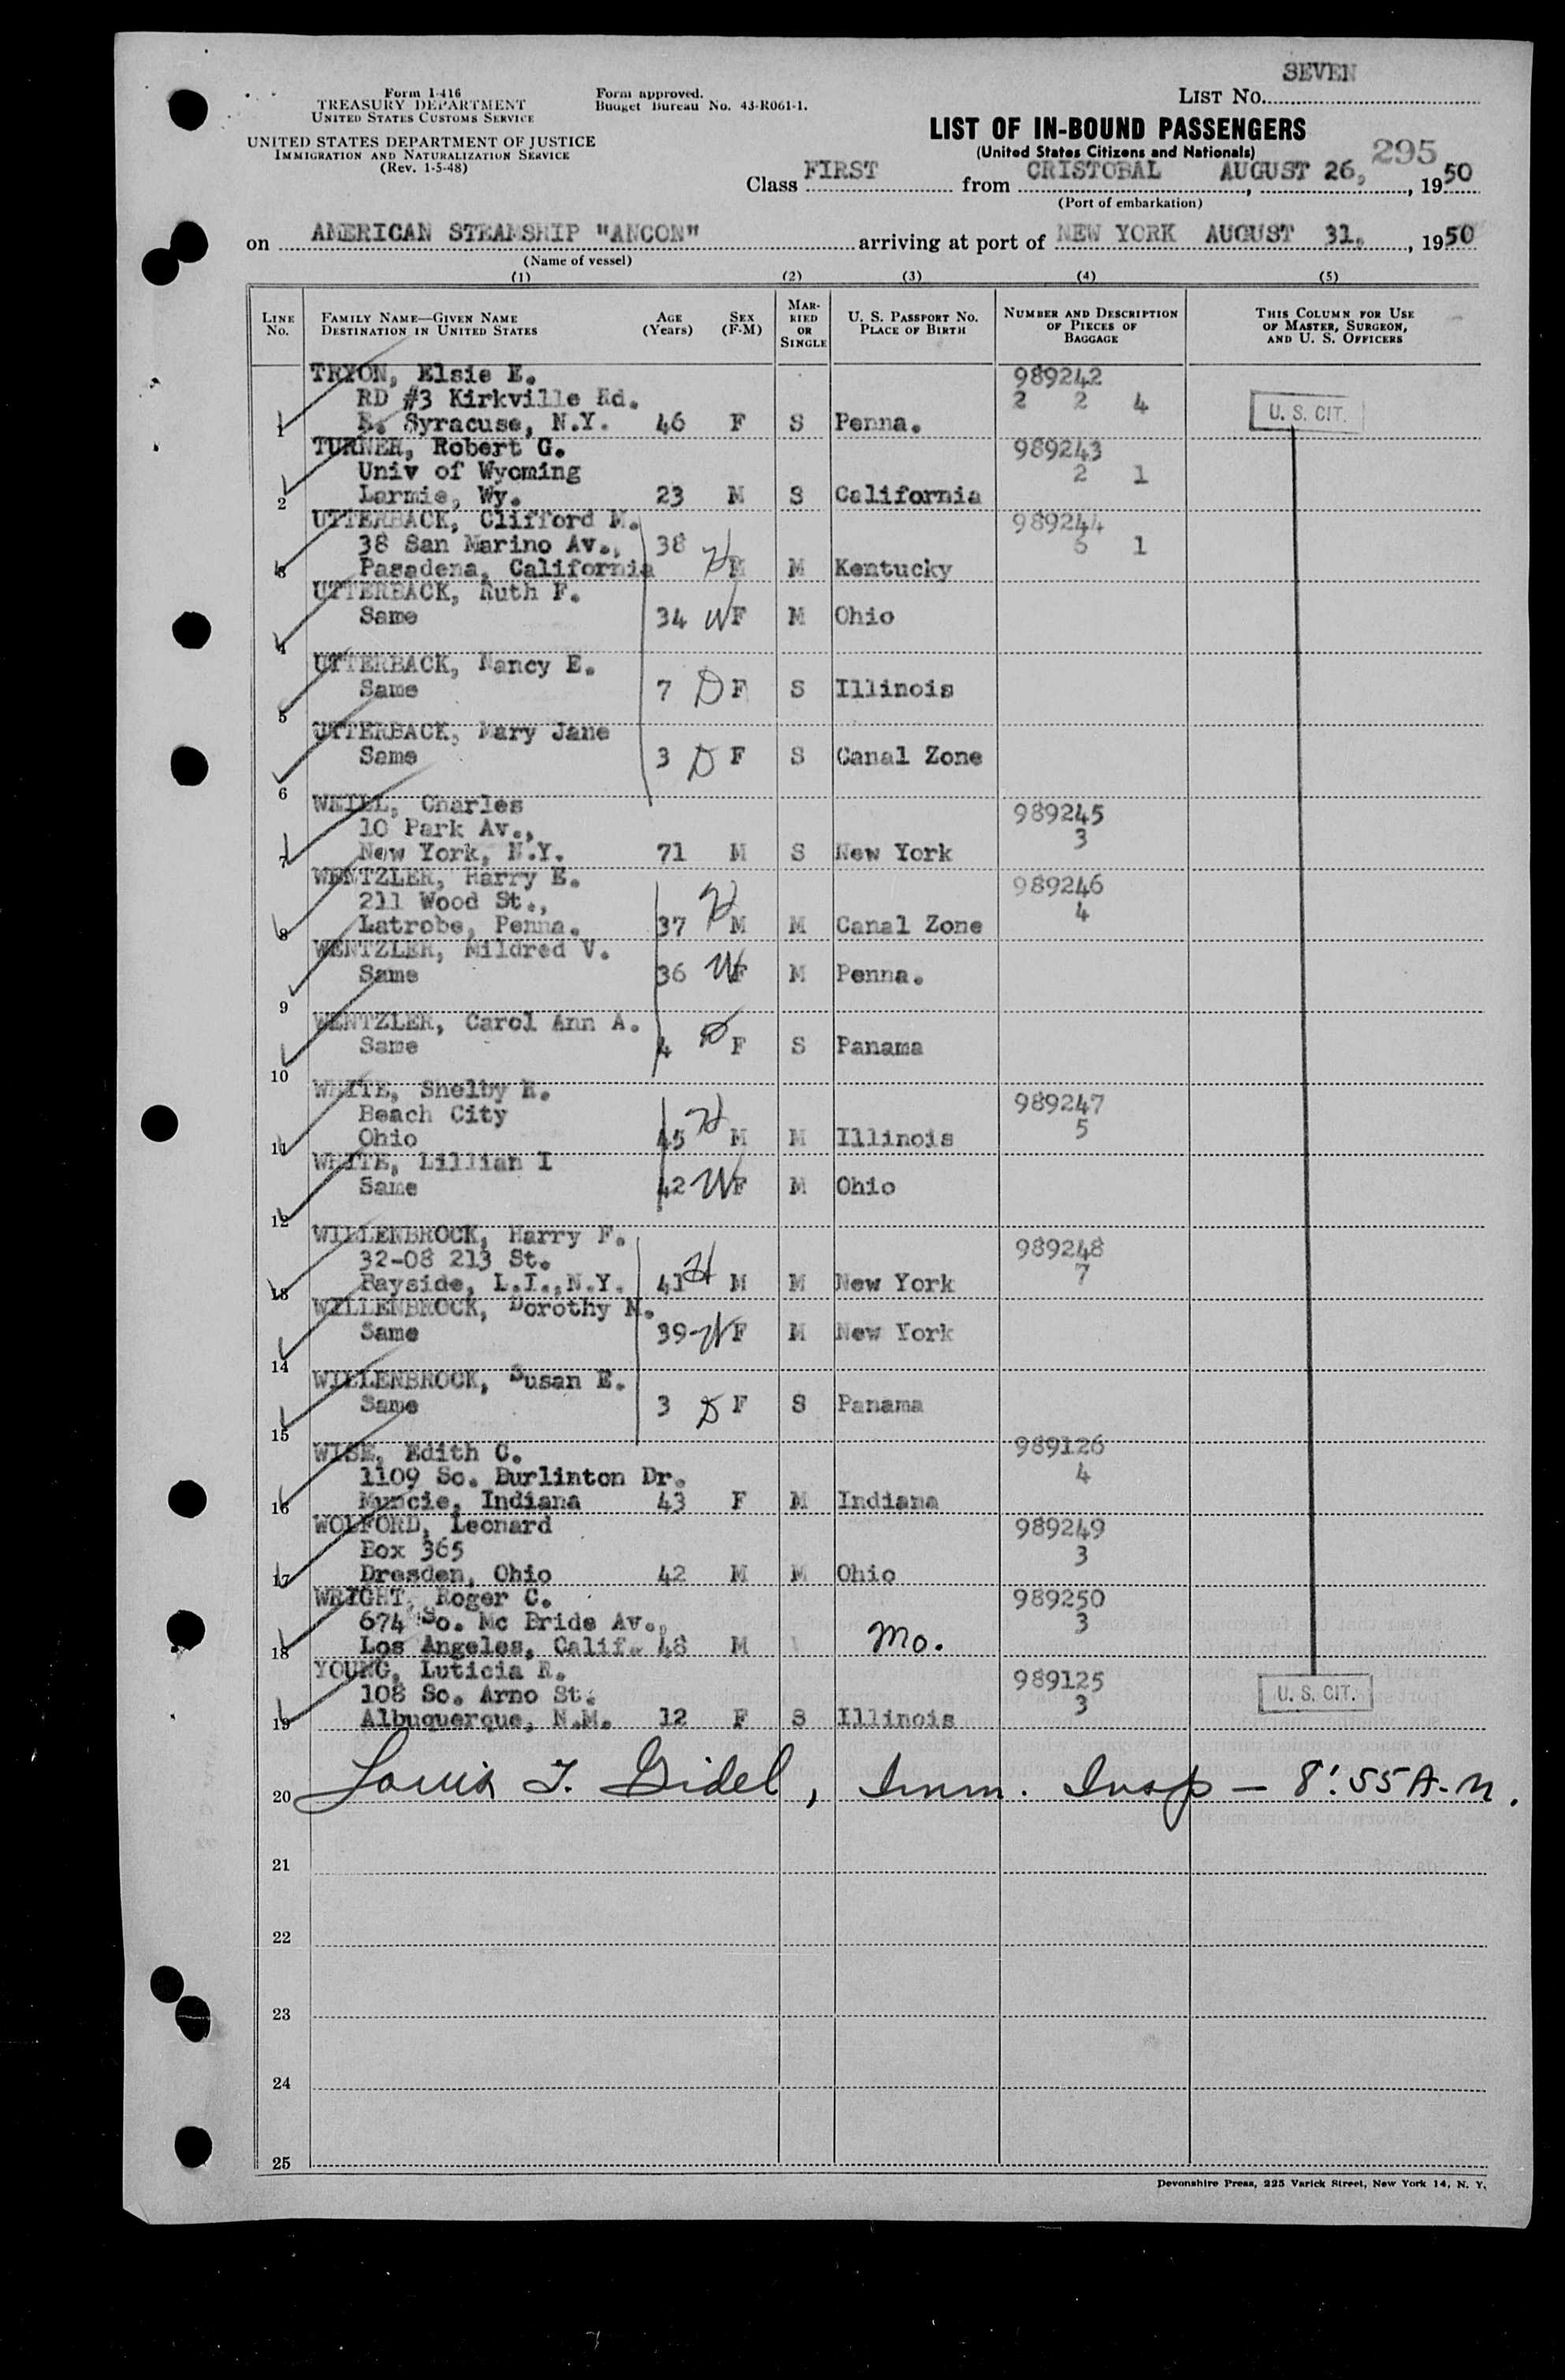 SEVEN
LIST NO.
Form I-416
TREASURY DEPARTMENT
UNITED STATES CUSTOMS SERVICE
UNITED STATES DEPARTMENT OF JUSTICE
IMMIGRATION AND NATURALIZATION SERVICE
(Rev. 1-5-48)
Form approved.
Budget Bureau No. 43-R061-1.
LIST OF IN-BOUND PASSENGERS
(United States Citizens and Nationals)
295
Class FIRST from CRISTOBAL, AUGUST 26, 1950
(Port of embarkation)
on AMERICAN STEAMSHIP "ANCON" arriving at port of NEW YORK AUGUST 31, 1950
(Name of vessel)
(1) (2) (3) (4) (5)
LINE NO.
FAMILY NAME—GIVEN NAME
DESTINATION IN UNITED STATES
AGE (Years)
SEX (F-M)
MARRIED OR SINGLE
U. S. PASSPORT NO.
PLACE OF BIRTH
NUMBER AND DESCRIPTION OF PIECES OF BAGGAGE
THIS COLUMN FOR USE OF MASTER, SURGEON, AND U. S. OFFICERS
TRYON, Elsie E. 989242
RD #3 Kirkville Rd. 2 2 4
1 E. Syracuse, N.Y. 46 F S Penna. U. S. CIT.
TURNER, Robert G. 989243
Univ of Wyoming 2 1
2 Larmie, Wy. 23 M S California
UTTERBACK, Clifford M. 989244
38 San Marino Av., 38 6 1
3 Pasadena, California H M M Kentucky
UTTERBACK, Ruth F.
4 Same 34 W F M Ohio
UTTERBACK, Nancy E.
5 Same 7 D F S Illinois
UTTERBACK, Mary Jane
6 Same 3 D F S Canal Zone
WEILL, Charles 989245
10 Park Av., 3
7 New York, N.Y. 71 M S New York
WENTZLER, Harry E. 989246
211 Wood St., 4
8 Latrobe, Penna. 37 H M M Canal Zone
WENTZLER, Mildred V.
9 Same 36 W F M Penna.
WENTZLER, Carol Ann A.
10 Same 4 D F S Panama
WHITE, Shelby R. 989247
Beach City 5
11 Ohio 45 H M M Illinois
WHITE, Lillian I
12 Same 42 W F M Ohio
WILLENBROCK, Harry F. 989248
32-08 213 St. 7
13 Bayside, L.I.,N.Y. 41 H M M New York
WILLENBROCK, Dorothy M.
14 Same 39 W F M New York
WILLENBROCK, Susan E.
15 Same 3 D F S Panama
WISE, Edith C. 989126
1109 So. Burlinton Dr. 4
16 Muncie, Indiana 43 F M Indiana
WOLFORD, Leonard 989249
Box 365 3
17 Dresden, Ohio 42 M M Ohio
WRIGHT, Roger C. 989250
674 So. Mc Bride Av., 3
18 Los Angeles, Calif. 48 M Mo.
YOUNG, Luticia R. 989125
108 So. Arno St. 3
19 Albuquerque, N.M. 12 F S Illinois U. S. CIT.
20 Louis J. Gidel, Imm. Insp — 8:55 A.M.
21
22
23
24
25
Devonshire Press, 225 Varick Street, New York 14, N. Y.